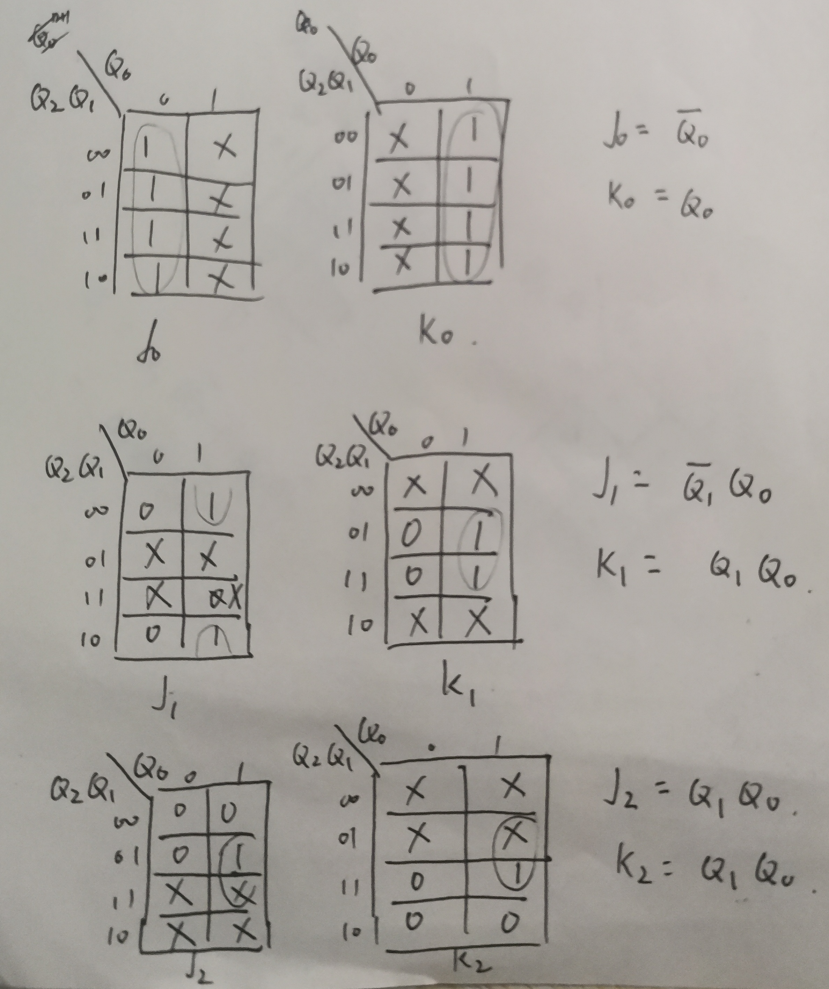 Q₀ⁿ⁺¹ Q₀
Q₂Q₁ Q₀ 0 1
00 1 X
01 1 X
11 1 X
10 1 X
J₀
Q₂Q₁ Q₀ 0 1
00 X 1
01 X 1
11 X 1
10 X 1
K₀.
J₀ = Q̅₀
K₀ = Q₀
Q₂Q₁ Q₀ 0 1
00 0 1
01 X X
11 X X
10 0 1
J₁
Q₂Q₁ Q₀ 0 1
00 X X
01 0 1
11 0 1
10 X X
K₁
J₁ = Q̅₁ Q₀
K₁ = Q₁ Q₀.
Q₂Q₁ Q₀ 0 1
00 0 0
01 0 1
11 X X
10 X X
J₂
Q₂Q₁ Q₀ 0 1
00 X X
01 X X
11 0 1
10 0 0
K₂
J₂ = Q₁ Q₀.
K₂ = Q₁ Q₀.